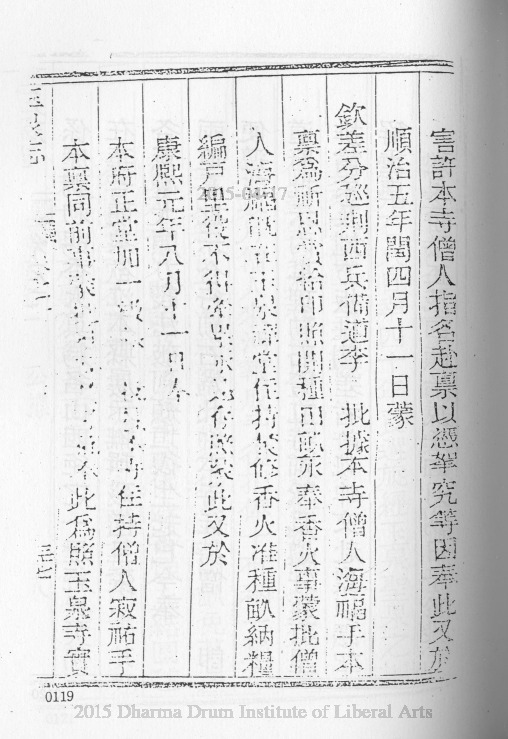 害許本寺僧人指名赴稟以憑拏究等因奉此又於
順治五年閏四月十一日蒙
欽差分巡荆西兵備道李 批據本寺僧人海福手本
稟爲祈恩賞給印照開種田畝永奉香火事蒙批僧
人海福既在玉泉 堂住持焚修香火准種畝納糧
編戶里役不得 此存照蒙此又於
康熙元年八月十一日奉
本府正堂加一級 住持僧人寂祐手
本稟同前事 此爲照玉泉寺實
玉泉志
0119
2015 Dharma Drum Institute of Liberal Arts